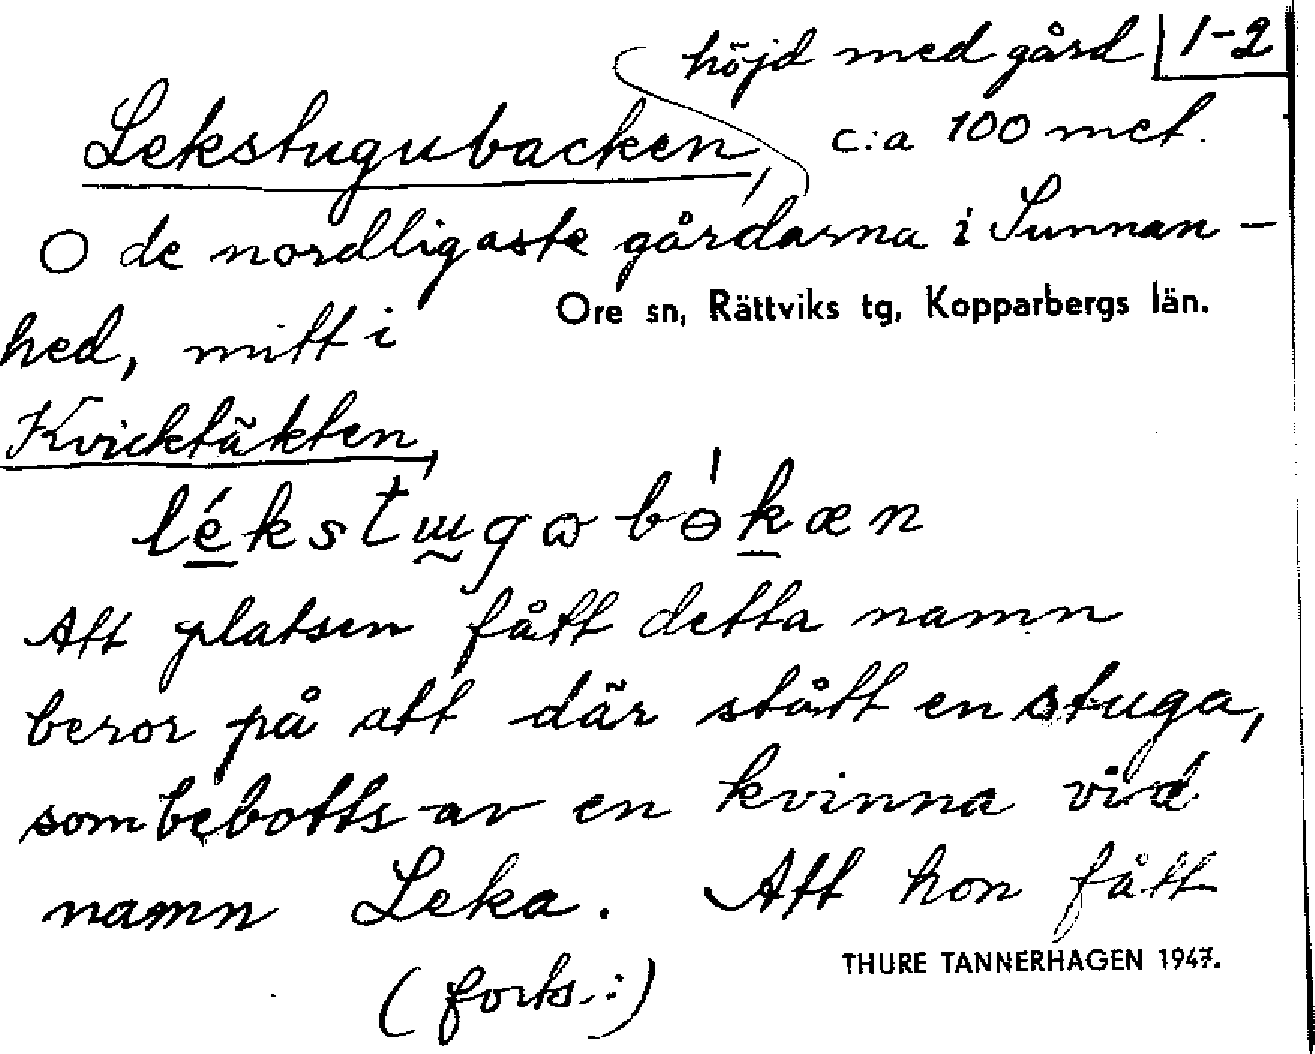 höjd med gård 1-2
Lekstugubacken, c:a 100 met.
O de nordligaste gårdarna i Sunnan-
Ore sn, Rättviks tg, Kopparbergs län.
hed, mitt i
Kvicktäkten,
lékstɯgɷbɵ́kæn
Att platsen fått detta namn
beror på att där stått en stuga,
som bebotts av en kvinna vid
namn Leka. Att hon fått
THURE TANNERHAGEN 1947.
(forts.:)